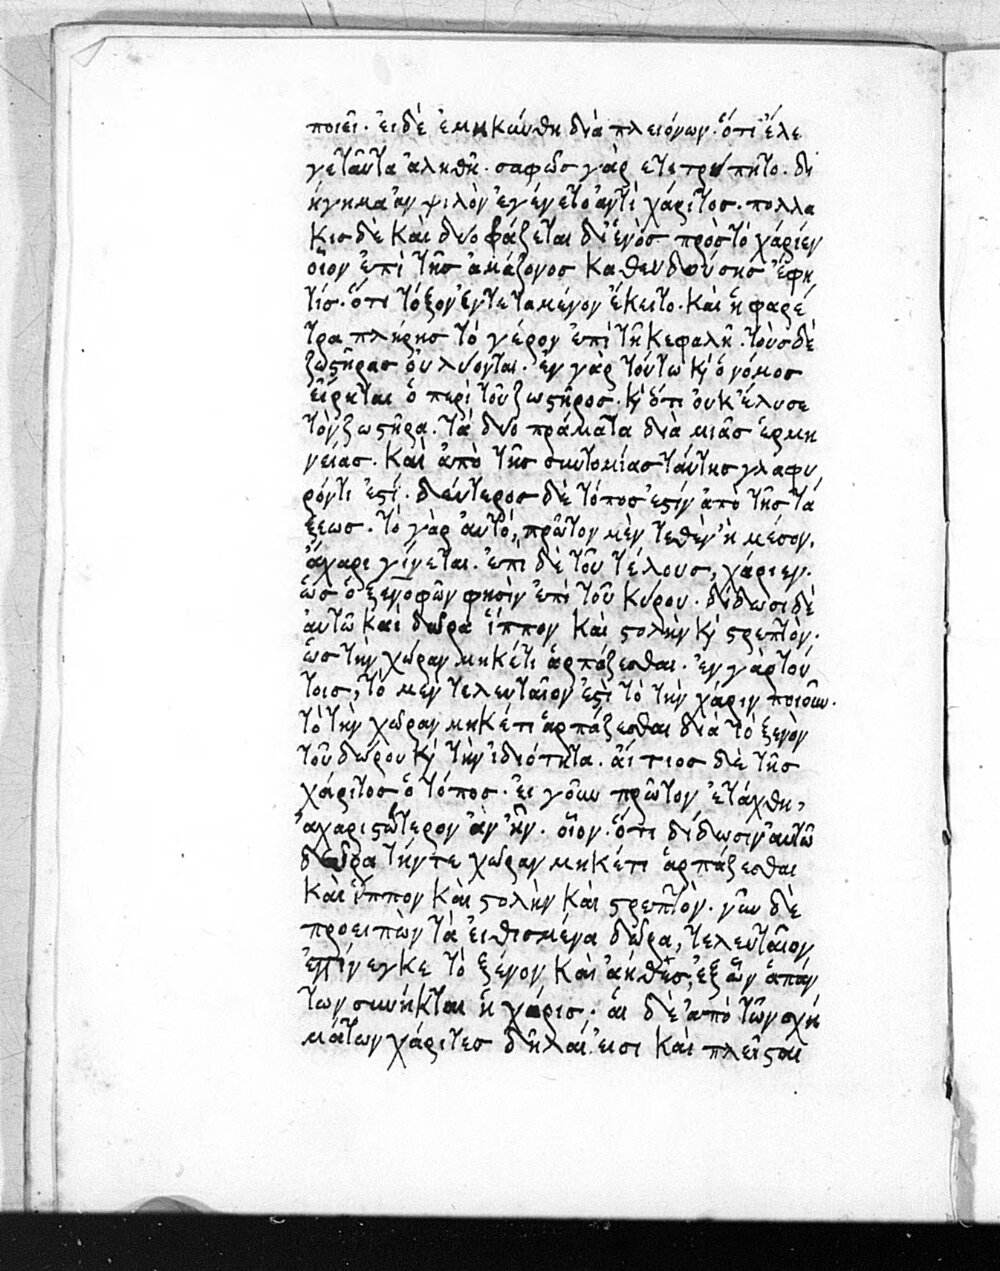 ποιεῖ. εἰ δὲ ἐμηκύνθη διὰ πλειόνων. ὅτι ἔλε
γε ταῦτα ἀληθῆ. σαφῶς γὰρ ἐτετρύπητο. δι
ήγημα ἂν ψιλὸν ἐγένετο ἀντὶ χάριτος. πολλά
κις δὲ καὶ δύο φράζεται δι' ἑνὸς πρὸς τὸ χάριεν
οἷον ἐπὶ τῆς ἀμάζονος καθευδούσης ἔφη
τίς. ὅτι τόξον ἐντεταμένον ἔκειτο. καὶ ἡ φαρέ
τρα πλήρης τὸ γέρον ἐπὶ τῆ κεφαλῆ. τοὺς δὲ
ζωστῆρας οὐ λύονται. ἐν γὰρ τούτω κὶ ὁ νόμος
εἴρηται ὁ περὶ τοῦ ζωστῆρος. κὶ ὅτι οὐκ ἔλυσε
τὸν ζωστῆρα. τὰ δύο πράματα διὰ μιᾶς ἑρμη
νείας. καὶ ἀπὸ τῆς συντομίας ταύτης γλαφυ
ρόν τι ἐστί. δεύτερος δὲ τόπος ἐστὶν ἀπὸ τῆς τά
ξεως. τὸ γὰρ αὐτὸ, πρῶτον μὲν τεθὲν ἢ μέσον,
ἄχαρι γίνεται. ἐπὶ δὲ τοῦ τέλους, χάριεν.
ὡς ὁ ξενοφῶν φησὶν ἐπὶ τοῦ κύρου. δίδωσι δὲ
αὐτῶ καὶ δῶρα ἵππον καὶ στολὴν κὶ στρεπτὸν.
ὡς τὴν χώραν μηκέτι ἁρπάζεσθαι. ἐν γὰρ τού
τοις, τὸ μὲν τελευταῖον ἐστὶ τὸ τὴν χάριν ποιοῦν.
τὸ τὴν χώραν μηκέτι ἁρπάζεσθαι διὰ τὸ ξενὸν
τοῦ δώρου κὶ τὴν ἰδιότητα. αἴτιος δὲ τῆς
χάριτος ὁ τόπος. εἰ γοῦν πρῶτον ἐτάχθη,
ἀχαριστώτερον ἂν ἦν. οἷον. ὅτι δίδωσιν αὐτῶ
δῶρα τήν τε χώραν μηκέτι ἁρπάζεσθαι
καὶ ἵππον καὶ στολὴν καὶ στρεπτὸν. νῦν δὲ
προειπὼν τὰ εἰθισμένα δῶρα, τελευταῖον
ἐπήνεγκε τὸ ξένον καὶ ἀηθὲς, ἐξ ὧν ἁπάν
των συνῆκται ἡ χάρις. αἱ δὲ ἀπὸ τῶν σχη
μάτων χάριτες δῆλαί εἰσι καὶ πλεῖσται